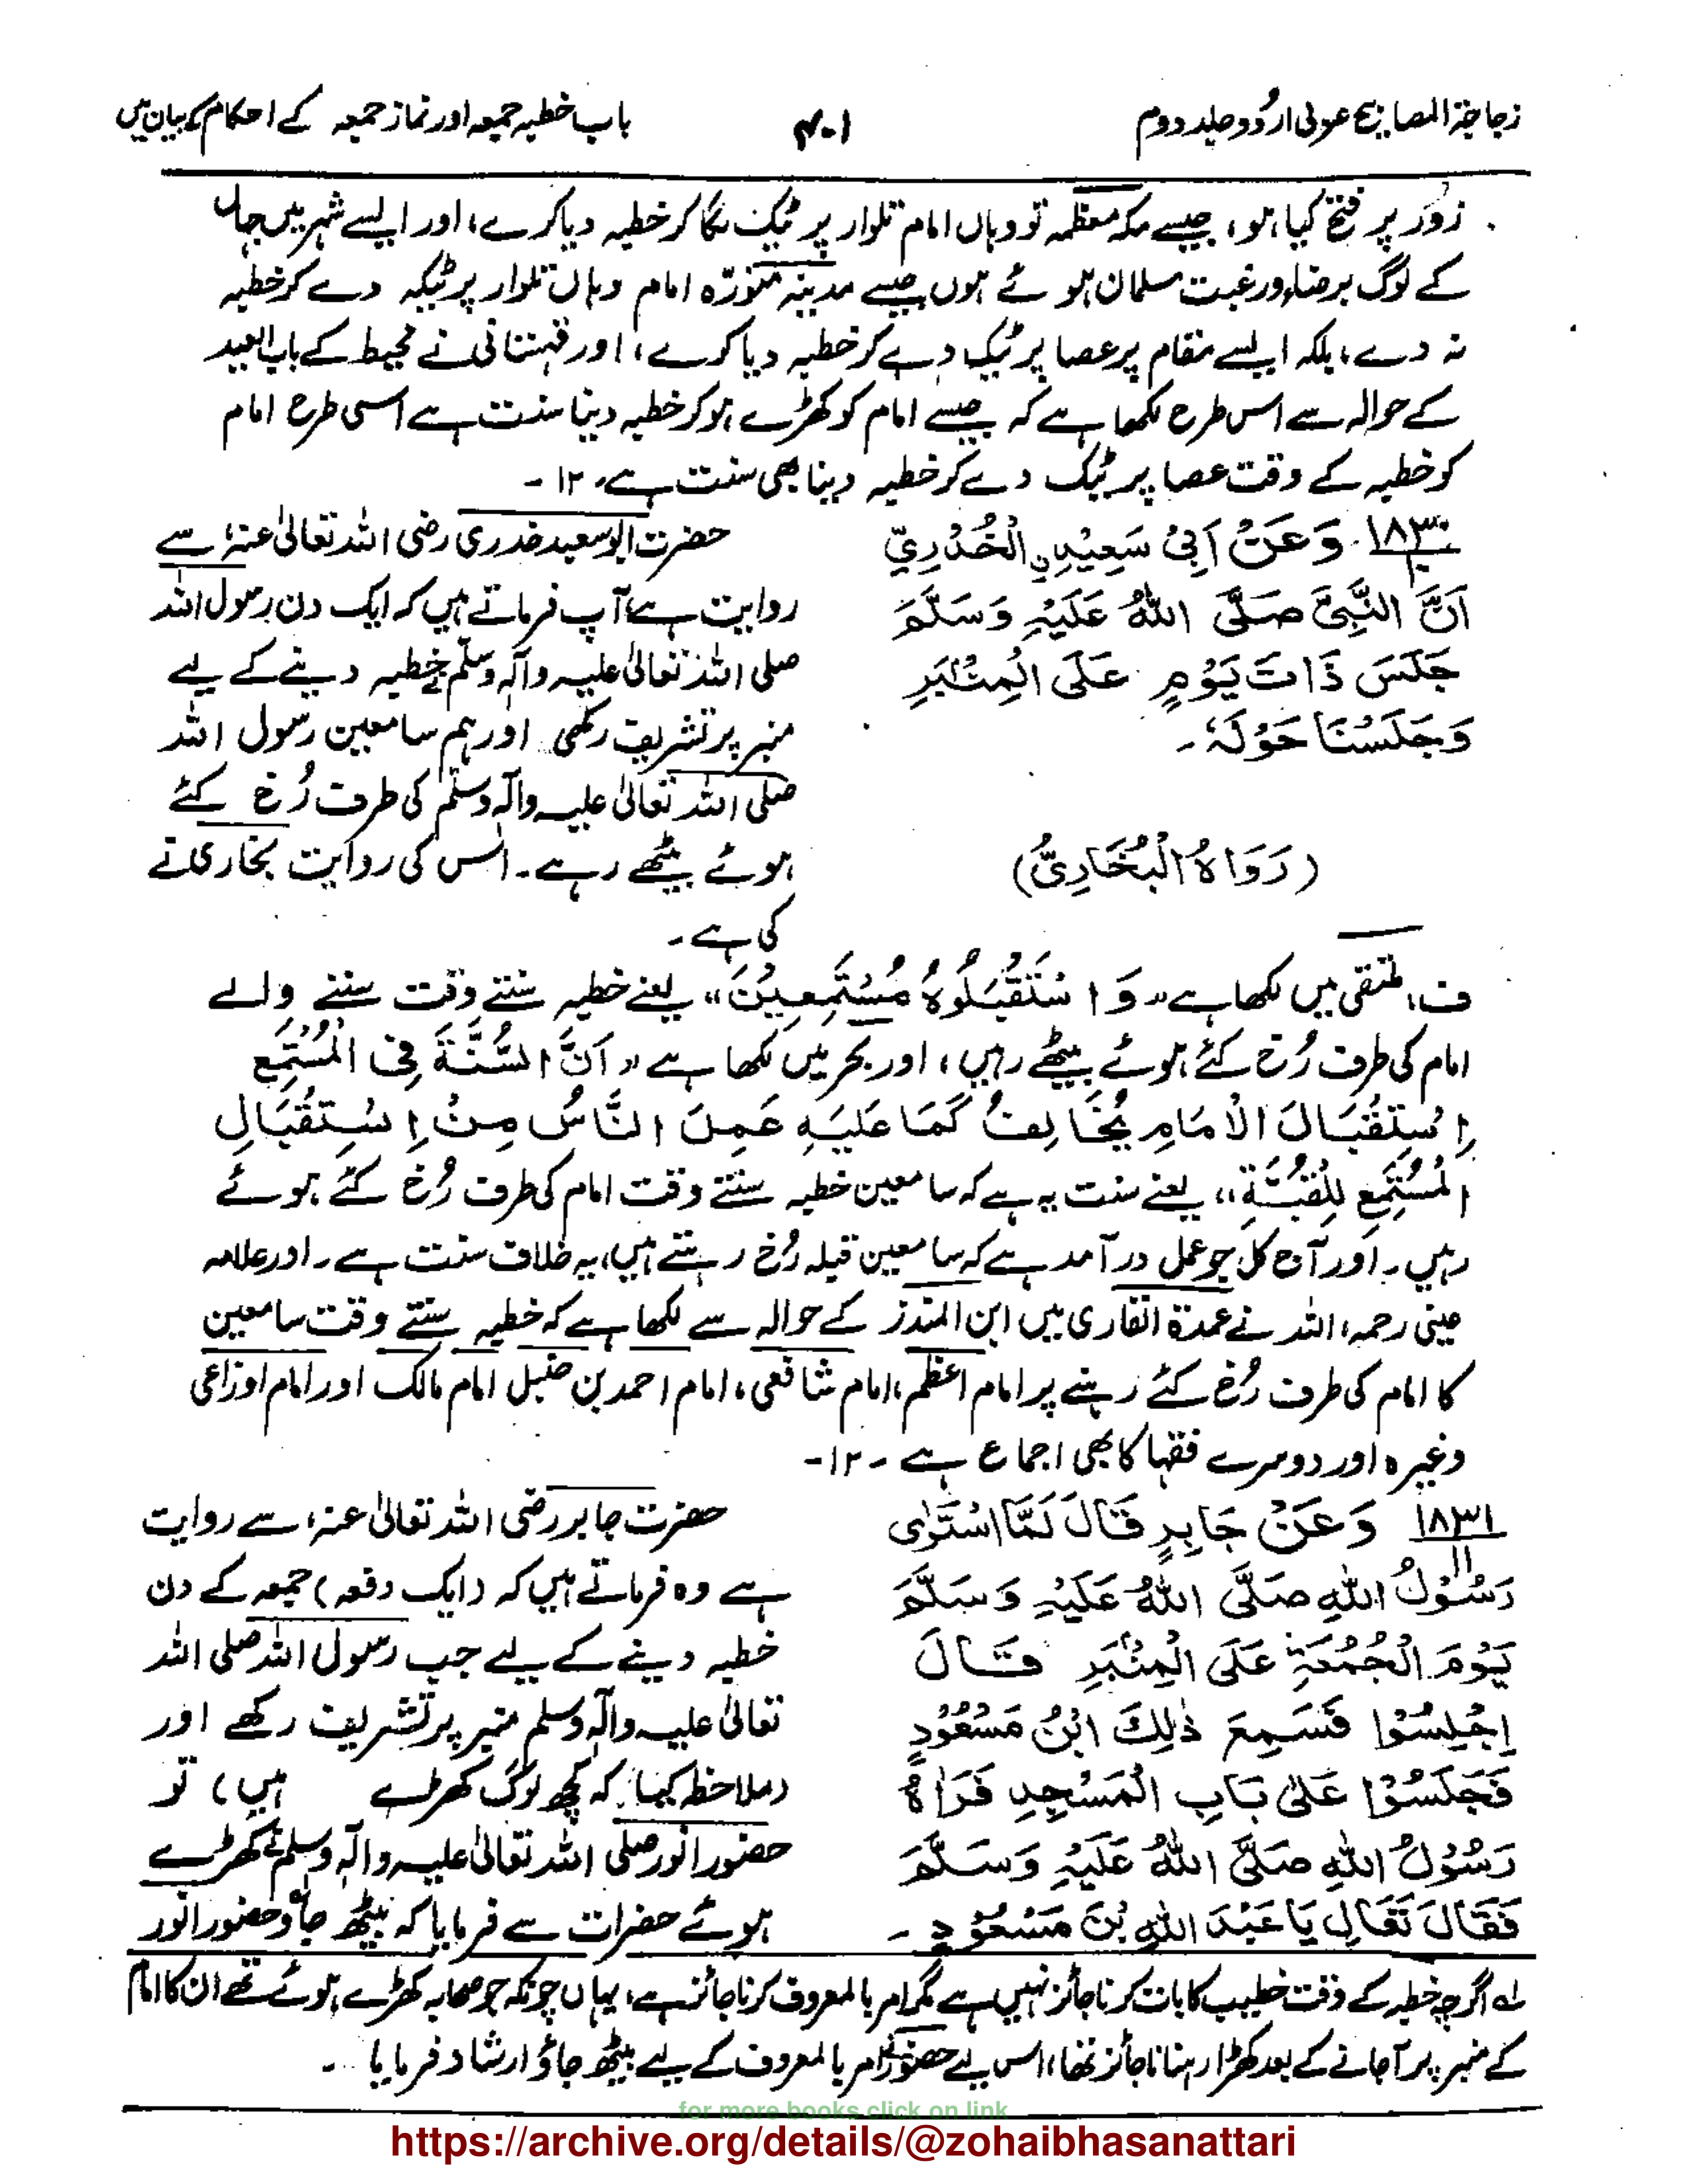 زجاجۃ المصابیح عربی اردو جلد دوم
۴۰۱
باب خطبہ جمعہ اور نماز جمعہ کے احکام کے بیان میں
زور پر فتح کیا ہو، جیسے مکہ معظمہ تو وہاں امام تلوار پر ٹیک لگا کر خطبہ دیا کرے، اور ایسے شہر میں جہاں
کے لوگ برضاء ورغبت مسلمان ہوئے ہوں جیسے مدینہ منورّہ امام وہاں تلوار پر ٹیکہ دے کر خطبہ
نہ دے، بلکہ ایسے مقام پر عصا پر ٹیک دے کر خطبہ دیا کرے، اور قہستانی نے محیط کے باب العید
کے حوالہ سے اس طرح لکھا ہے کہ جیسے امام کو کھڑے ہو کر خطبہ دینا سنت ہے اسی طرح امام
کو خطبہ کے وقت عصا پر ٹیک دے کر خطبہ دینا بھی سنت ہے، ۱۲۔
۱۸۳۰ وَعَنْ اَبِیْ سَعِیْدِنِ الْخُدْرِیِّ
اَنَّ النَّبِیَّ صَلَّی اللّٰہُ عَلَیْہِ وَسَلَّمَ
جَلَسَ ذَاتَ یَوْمٍ عَلَی الْمِنْبَرِ
وَجَلَسْنَا حَوْلَہٗ۔
(رَوَاہُ الْبُخَارِیُّ)
حضرت ابوسعید خدری رضی اللہ تعالیٰ عنہٗ سے
روایت ہے آپ فرماتے ہیں کہ ایک دن رسول اللہ
صلی اللہ تعالیٰ علیہ وآلہٖ وسلّم نے خطبہ دینے کے لیے
منبر پر تشریف رکھی اور ہم سامعین رسول اللہ
صلی اللہ تعالیٰ علیہ وآلہٖ وسلّم کی طرف رُخ کئے
ہوئے بیٹھے رہے۔ اس کی روایت بخاری نے
کی ہے۔
ف، ملتقی میں لکھا ہے " وَاسْتَقْبَلُوْہُ مُسْتَمِعِیْنَ" یعنے خطبہ سنتے وقت سننے والے
امام کی طرف رُخ کئے ہوئے بیٹھے رہیں، اور بحر میں لکھا ہے " اَنَّ السُّنَّةَ فِی الْمُسْتَمِعِ
اِسْتِقْبَالَ الْاِمَامِ یُخَالِفُ کَمَا عَلَیْہِ عَمِلَ النَّاسُ مِنْ اِسْتِقْبَالِ
الْمُسْتَمِعِ لِلْقِبْلَةِ" یعنے سنت یہ ہے کہ سامعین خطبہ سنتے وقت امام کی طرف رُخ کئے ہوئے
رہیں۔ اور آج کل جو عمل درآمد ہے کہ سامعین قبلہ رُخ رہتے ہیں، یہ خلاف سنت ہے۔ اور علامہ
عینی رحمہ اللہ نے عمدۃ القاری میں ابن المنذر کے حوالہ سے لکھا ہے کہ خطبہ سنتے وقت سامعین
کا امام کی طرف رُخ کئے رہنے پر امام اعظم، امام شافعی، امام احمد بن حنبل امام مالک اور امام اوزاعی
وغیرہ اور دوسرے فقہا کا بھی اجماع ہے ۔ ۱۲۔
۱۸۳۱ وَعَنْ جَابِرٍ قَالَ لَمَّا اسْتَوٰی
۱۱
رَسُوْلُ اللّٰہِ صَلَّی اللّٰہُ عَلَیْہِ وَسَلَّمَ
یَوْمَ الْجُمُعَةِ عَلَی الْمِنْبَرِ قَالَ
اِجْلِسُوْا فَسَمِعَ ذٰلِکَ ابْنُ مَسْعُوْدٍ
فَجَلَسُوْا عَلٰی بَابِ الْمَسْجِدِ فَرَاٰہُ
رَسُوْلُ اللّٰہِ صَلَّی اللّٰہُ عَلَیْہِ وَسَلَّمَ
فَقَالَ تَعَالِ یَا عَبْدَ اللّٰہِ بْنَ مَسْعُوْدٍ۔
حضرت جابر رضی اللہ تعالیٰ عنہٗ سے روایت
ہے وہ فرماتے ہیں کہ (ایک دفعہ) جمعہ کے دن
خطبہ دینے کے لیے جب رسول اللہ صلی اللہ
تعالیٰ علیہ وآلہٖ وسلم منبر پر تشریف رکھے اور
(ملاحظہ کیا کہ کچھ لوگ کھڑے ہیں) تو
حضور انور صلی اللہ تعالیٰ علیہ وآلہٖ وسلم نے کھڑے
ہوئے حضرات سے فرمایا کہ بیٹھ جاؤ حضور انور
لہ اگرچہ خطبہ کے وقت خطیب کا بات کرنا جائز نہیں ہے مگر امر بالمعروف کرنا جائز ہے، یہاں چونکہ جو صحابہ کھڑے ہوئے تھے ان کا امام
کے منبر پر آجانے کے بعد کھڑا رہنا ناجائز تھا، اس لیے حضور نے امر بالمعروف کے لیے بیٹھ جاؤ ارشاد فرمایا ۔
for more books click on link
https://archive.org/details/@zohaibhasanattari